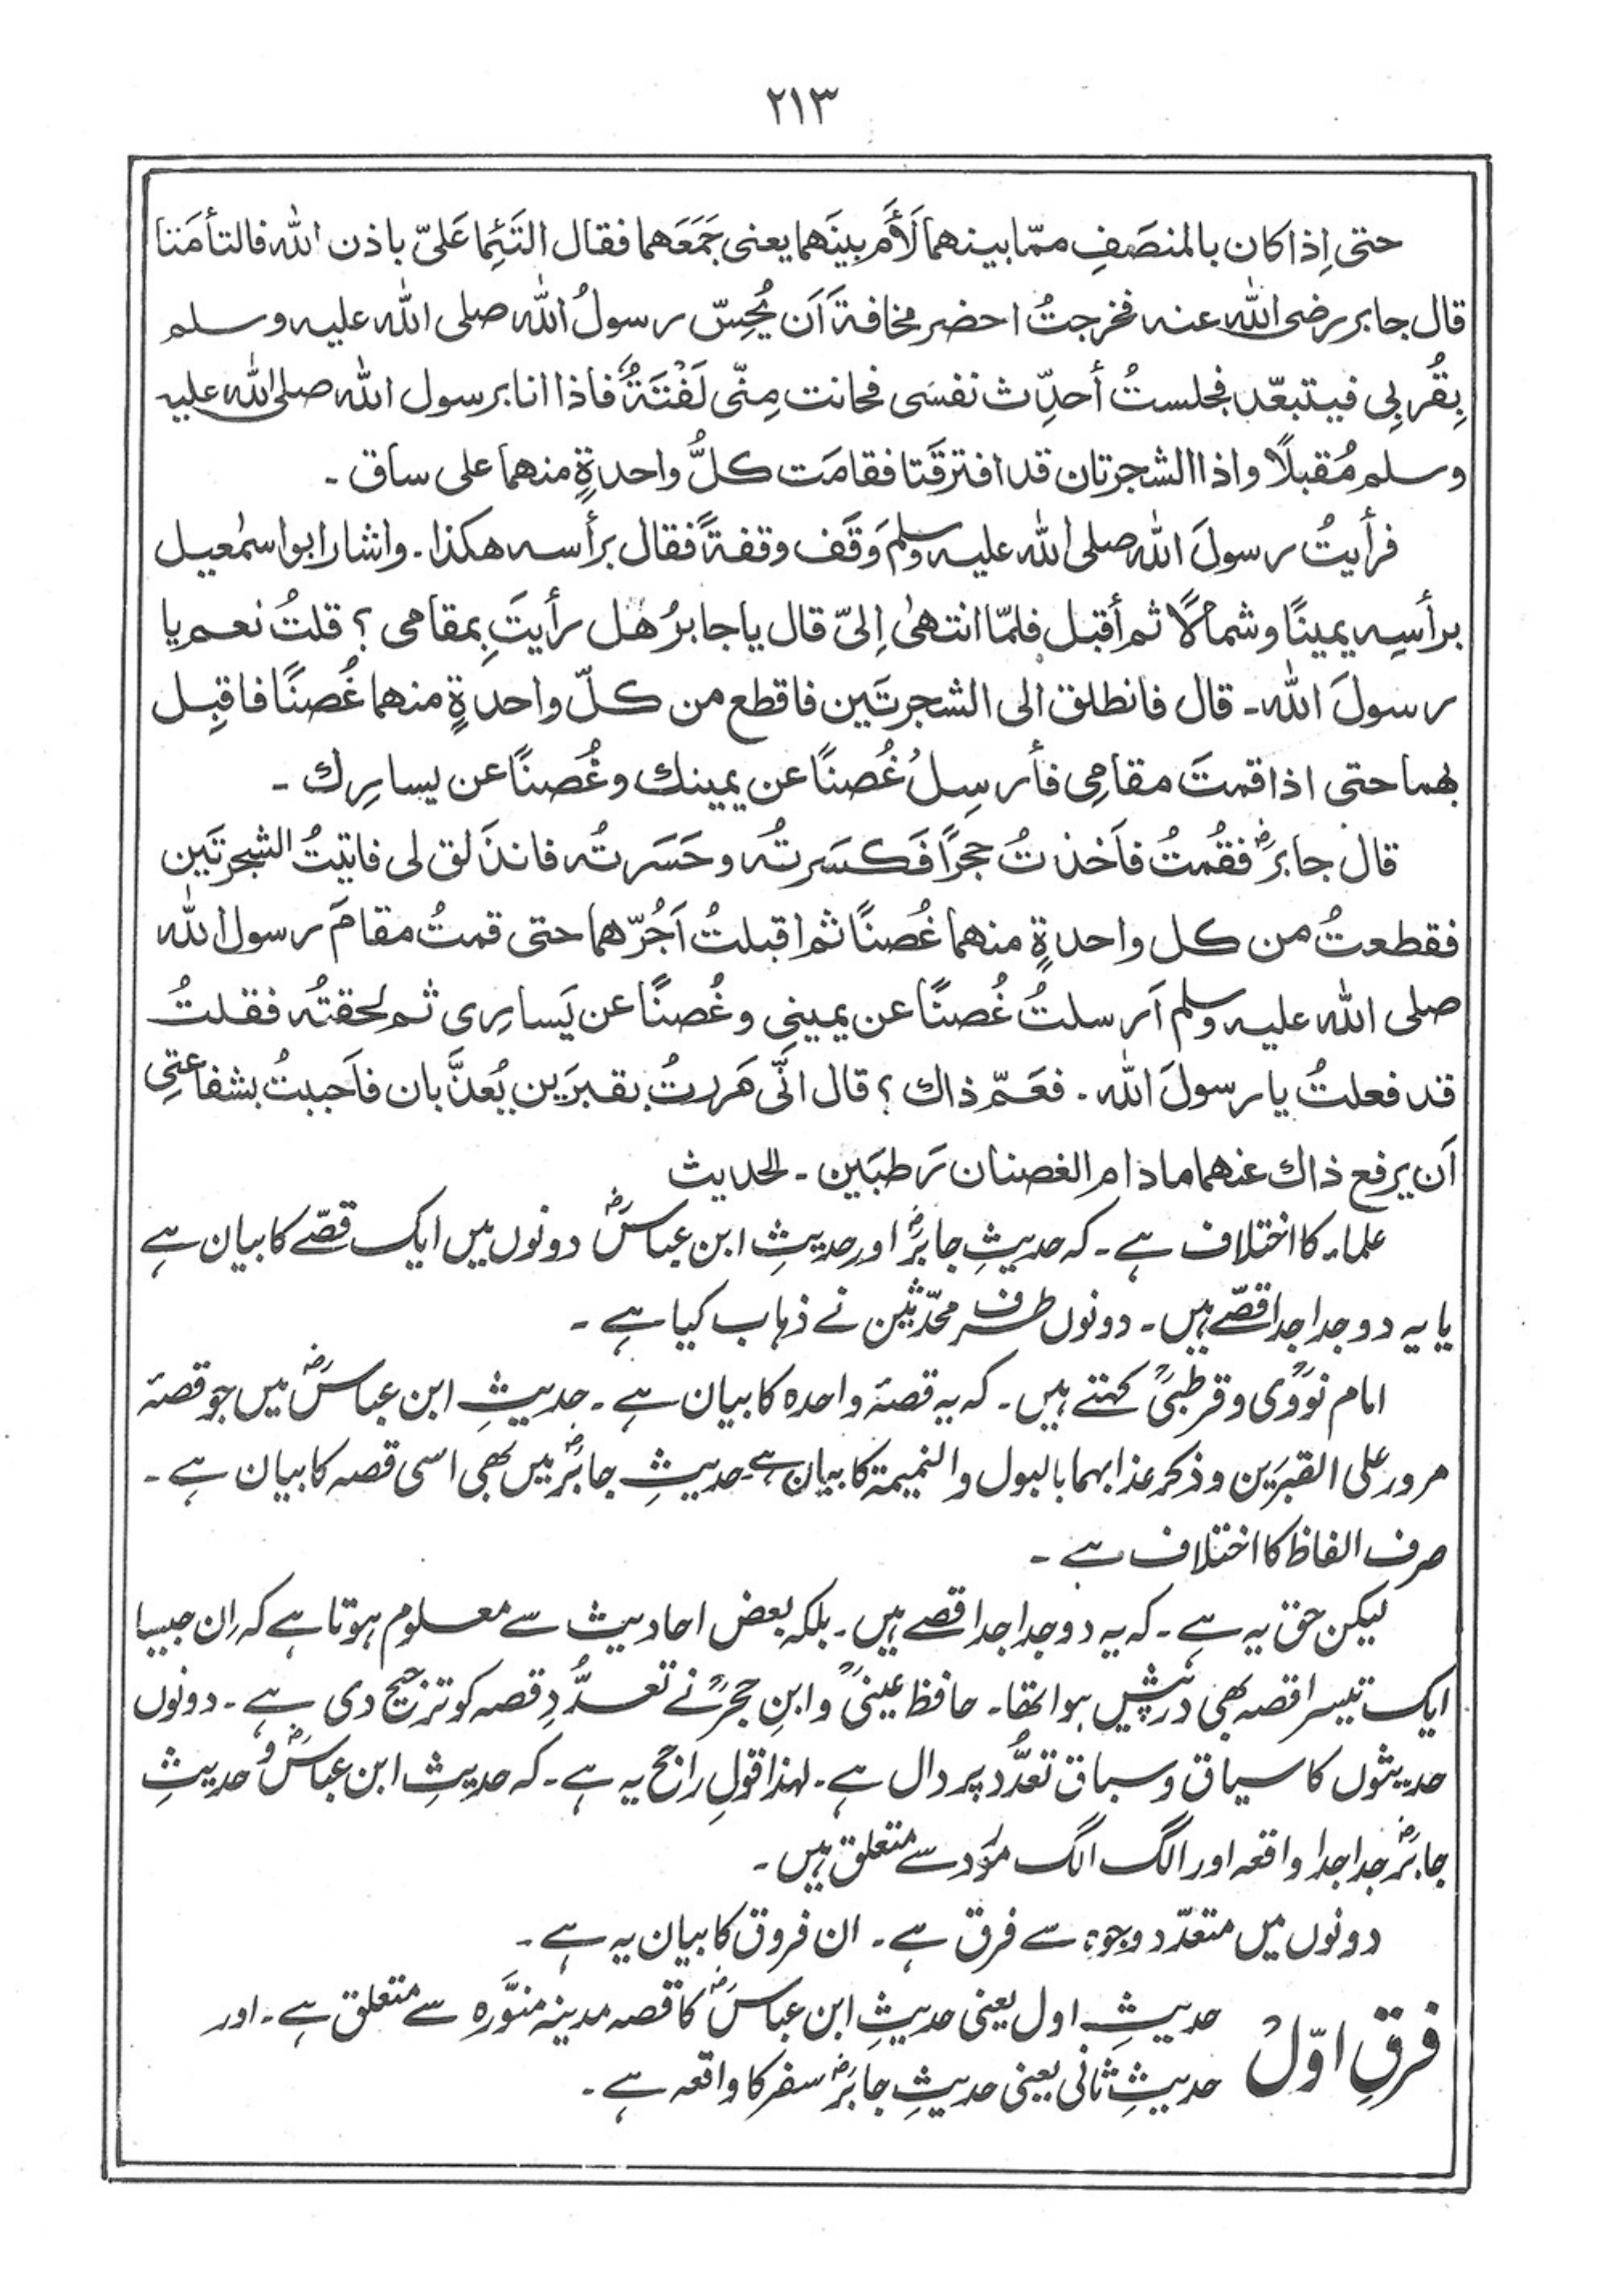 ٢١٣
حتى اِذا كان بالمنصَفِ ممّا بينهما لَأَمَ بينَهما يعنى جَمَعَهما فقال التَئِما عَلىّ باذن الله فالتأمَتا
قال جابر رضى الله عنه فخرجتُ احضر مخافةَ اَن يُحِسّ رسولُ الله صلى الله عليه وسلم
بِقُربِى فيتبعّد فجلستُ أحدِّث نفسَى فحانت مِنّى لَفْتَةٌ فاذا انا برسول الله صلى الله عليه
وسلم مُقبلًا واذا الشجرتان قد افترقَتا فقامَت كلُّ واحدةٍ منهما على ساق ۔
فرأيتُ رسولَ الله صلى الله عليه وسلم وَقَف وقفةً فقال برأسه هكذا ۔ واشار ابو اسمٰعيل
برأسِه يمينًا وشمالًا ثم أقبل فلمّا انتهىٰ اِلىّ قال يا جابرُ هَل رأيتَ بِمقامى ؟ قلتُ نعم يا
رسولَ الله ۔ قال فانطلق الى الشجرتَين فاقطع من كلّ واحدةٍ منهما غُصنًا فاقبِل
بهما حتى اذا قمتَ مقامِى فأرسِلُ غُصنًا عن يمينك وغُصنًا عن يسارِك ۔
قال جابرؓ فقُمتُ فاَخذتُ حجرًا فَكسَرتُه وحَسَرتُه فانذَلق لى فاتيتُ الشجرتَين
فقطعتُ من كل واحدةٍ منهما غُصنًا ثم اقبلتُ اَجُرّهما حتى قمتُ مقامَ رسول الله
صلى الله عليه وسلم اَرسلتُ غُصنًا عن يمينى وغُصنًا عن يَسارِى ثم لحقتُه فقلتُ
قد فعلتُ يا رسولَ الله ۔ فعَمّ ذاك ؟ قال انّى مَررتُ بقبرَين يُعذَّبان فاَحببتُ بشفاعتِى
اَن يرفع ذاك عنهما مادام الغصنان رَطبَين ۔ الحديث
علماء کا اختلاف ہے ۔ کہ حدیثِ جابرؓ اور حدیثِ ابن عباسؓ دونوں میں ایک قصّے کا بیان ہے
یا یہ دو جدا جدا قصّے ہیں ۔ دونوں طرف محدّثین نے ذہاب کیا ہے ۔
امام نوَویؒ و قرطبیؒ کہتے ہیں ۔ کہ یہ قصۂ واحدہ کا بیان ہے ۔ حدیثِ ابن عباسؓ میں جو قصۂ
مرور علی القبرَین وذکر عذابہما بالبول والنمیمۃ کا بیان ہے ۔ حدیثِ جابرؓ میں بھی اسی قصہ کا بیان ہے ۔
صرف الفاظ کا اختلاف ہے ۔
لیکن حق یہ ہے ۔ کہ یہ دو جدا جدا قصے ہیں ۔ بلکہ بعض احادیث سے معلوم ہوتا ہے کہ اِن جیسا
ایک تیسرا قصہ بھی درپیش ہوا تھا ۔ حافظ عینیؒ و ابنِ حجرؒ نے تعدُّدِ قصہ کو ترجیح دی ہے ۔ دونوں
حدیثوں کا سیاق و سباق تعدُّد پر دال ہے ۔ لہذا قولِ راجح یہ ہے ۔ کہ حدیثِ ابن عباسؓ و حدیثِ
جابرؓ جدا جدا واقعہ اور الگ الگ سے متعلق ہیں ۔
دونوں میں متعدّد وجوہ سے فرق ہے ۔ ان فروق کا بیان یہ ہے ۔
فرقِ اوّل حدیثِ اول یعنی حدیثِ ابن عباسؓ کا قصہ مدینہ منوَّرہ سے متعلق ہے ۔ اور
حدیثِ ثانی یعنی حدیثِ جابرؓ سفر کا واقعہ ہے ۔